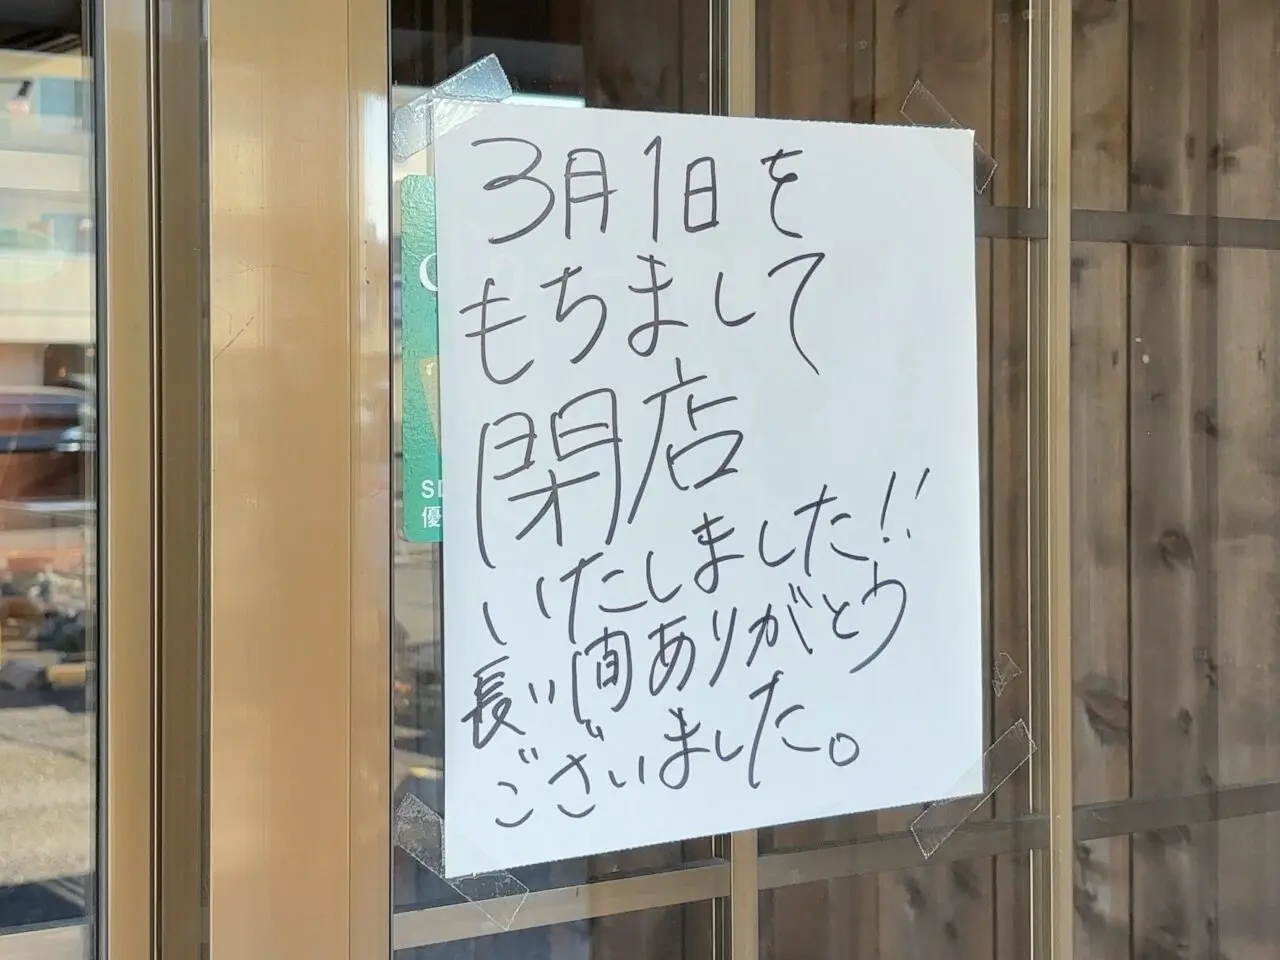 3月1日を
もちまして
閉店
いたしました!!
長い間ありがとう
ございました。
SD
優